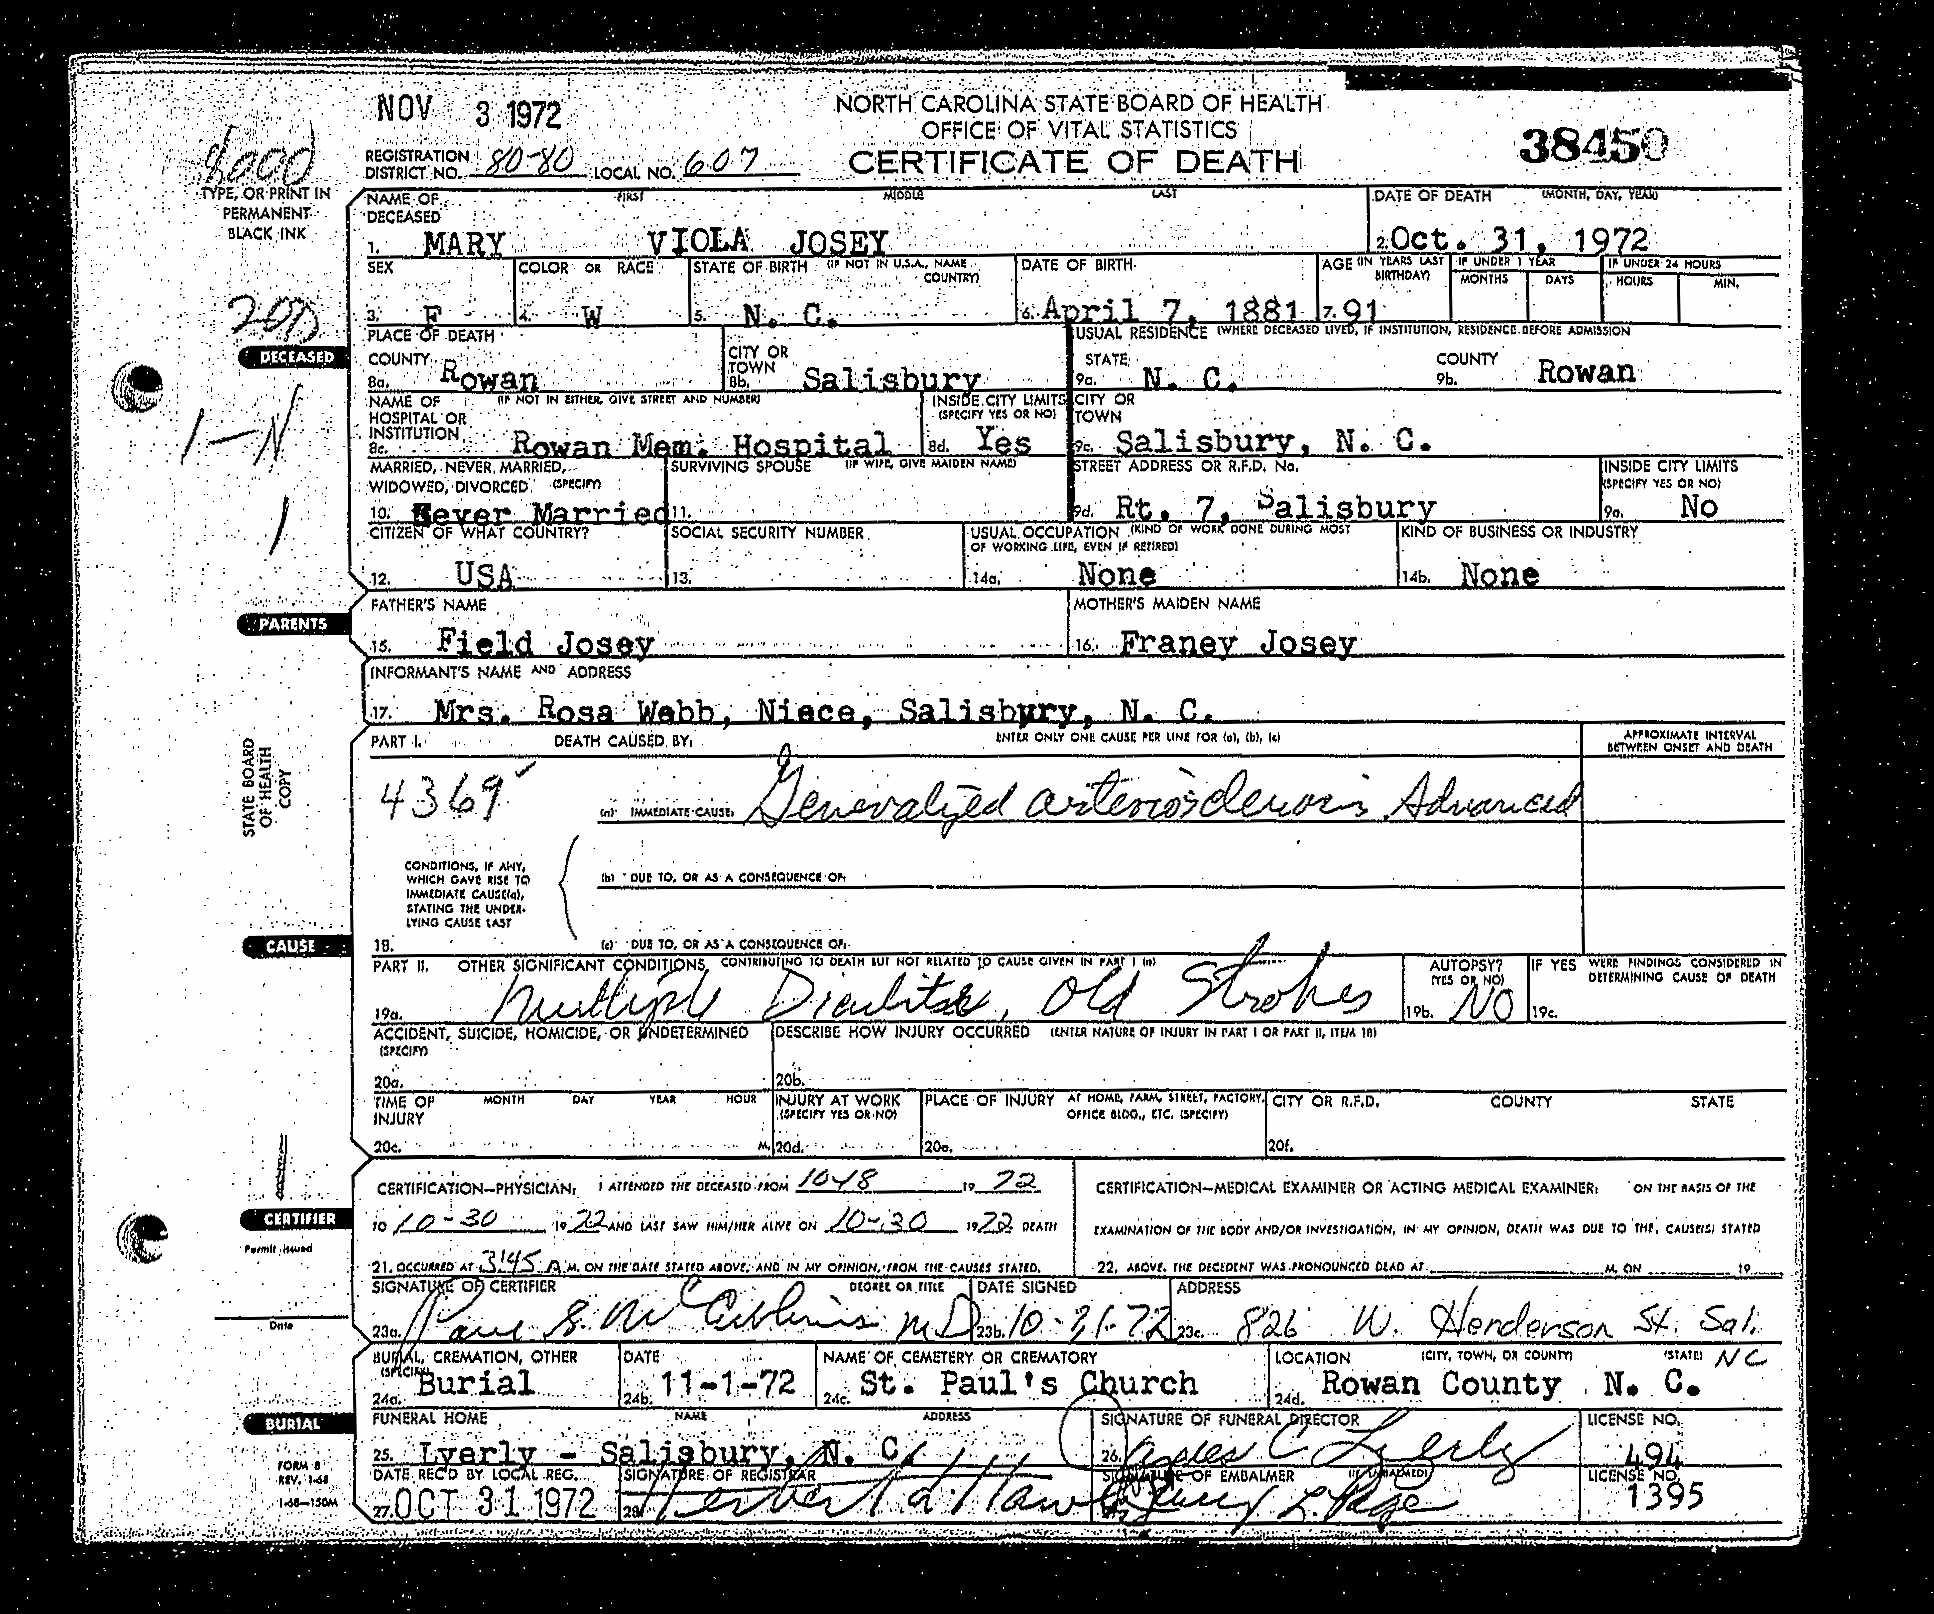 NOV 3 1972
NORTH CAROLINA STATE BOARD OF HEALTH
OFFICE OF VITAL STATISTICS
CERTIFICATE OF DEATH
38450
REGISTRATION DISTRICT NO. 80-80 LOCAL NO. 607
TYPE, OR PRINT IN
PERMANENT
BLACK INK
NAME OF DECEASED FIRST MIDDLE LAST
1. MARY VIOLA JOSEY
DATE OF DEATH (MONTH, DAY, YEAR)
2. Oct. 31, 1972
SEX
3. F
COLOR OR RACE
4. W
STATE OF BIRTH (IF NOT IN U.S.A., NAME COUNTRY)
5. N. C.
DATE OF BIRTH
6. April 7, 1881
AGE (IN YEARS LAST BIRTHDAY)
7. 91
IF UNDER 1 YEAR
MONTHS DAYS
IF UNDER 24 HOURS
HOURS MIN.
DECEASED
PLACE OF DEATH
COUNTY
8a. Rowan
CITY OR TOWN
8b. Salisbury
USUAL RESIDENCE (WHERE DECEASED LIVED, IF INSTITUTION, RESIDENCE BEFORE ADMISSION
STATE
9a. N. C.
COUNTY
9b. Rowan
NAME OF HOSPITAL OR INSTITUTION (IF NOT IN EITHER, GIVE STREET AND NUMBER)
8c. Rowan Mem. Hospital
INSIDE CITY LIMITS (SPECIFY YES OR NO)
8d. Yes
CITY OR TOWN
9c. Salisbury, N. C.
1-N
MARRIED, NEVER MARRIED, WIDOWED, DIVORCED (SPECIFY)
10. Never Married
SURVIVING SPOUSE (IF WIFE, GIVE MAIDEN NAME)
11.
STREET ADDRESS OR R.F.D. No.
9d. Rt. 7, Salisbury
INSIDE CITY LIMITS (SPECIFY YES OR NO)
9e. No
1
CITIZEN OF WHAT COUNTRY?
12. USA
SOCIAL SECURITY NUMBER
13.
USUAL OCCUPATION (KIND OF WORK DONE DURING MOST OF WORKING LIFE, EVEN IF RETIRED)
14a. None
KIND OF BUSINESS OR INDUSTRY
14b. None
PARENTS
FATHER'S NAME
15. Field Josey
MOTHER'S MAIDEN NAME
16. Franey Josey
INFORMANT'S NAME AND ADDRESS
17. Mrs. Rosa Webb, Niece, Salisbury, N. C.
STATE BOARD
OF HEALTH
COPY
PART I. DEATH CAUSED BY: ENTER ONLY ONE CAUSE PER LINE FOR (a), (b), (c)
APPROXIMATE INTERVAL BETWEEN ONSET AND DEATH
4369
(a) IMMEDIATE CAUSE: Generalized arteriosclerosis Advanced
CONDITIONS, IF ANY,
WHICH GAVE RISE TO
IMMEDIATE CAUSE(a),
STATING THE UNDER-
LYING CAUSE LAST
(b) DUE TO, OR AS A CONSEQUENCE OF:
CAUSE
18. (c) DUE TO, OR AS A CONSEQUENCE OF:
PART II. OTHER SIGNIFICANT CONDITIONS, CONTRIBUTING TO DEATH BUT NOT RELATED TO CAUSE GIVEN IN PART I (a)
19a. Multiple Old Strokes
AUTOPSY? (YES OR NO)
19b. NO
IF YES WERE FINDINGS CONSIDERED IN DETERMINING CAUSE OF DEATH
19c.
ACCIDENT, SUICIDE, HOMICIDE, OR UNDETERMINED (SPECIFY)
20a.
DESCRIBE HOW INJURY OCCURRED (ENTER NATURE OF INJURY IN PART I OR PART II, ITEM 18)
20b.
TIME OF INJURY MONTH DAY YEAR HOUR
20c. M.
INJURY AT WORK (SPECIFY YES OR NO)
20d.
PLACE OF INJURY AT HOME, FARM, STREET, FACTORY, OFFICE BLDG., ETC. (SPECIFY)
20e.
CITY OR R.F.D. COUNTY STATE
20f.
CERTIFIER
Permit issued
Date
CERTIFICATION—PHYSICIAN: I ATTENDED THE DECEASED FROM 10-18 19 72
TO 10-30 19 72 AND LAST SAW HIM/HER ALIVE ON 10-30 1972 DEATH
21. OCCURRED AT 3:45 A M. ON THE DATE STATED ABOVE, AND IN MY OPINION, FROM THE CAUSES STATED.
CERTIFICATION—MEDICAL EXAMINER OR ACTING MEDICAL EXAMINER: ON THE BASIS OF THE
EXAMINATION OF THE BODY AND/OR INVESTIGATION, IN MY OPINION, DEATH WAS DUE TO THE CAUSE(S) STATED
22. ABOVE. THE DECEDENT WAS PRONOUNCED DEAD AT M. ON 19
SIGNATURE OF CERTIFIER DEGREE OR TITLE
23a. Paul S. McCubbins MD
DATE SIGNED
23b. 10-31-72
ADDRESS
23c. 826 W. Henderson St. Sal. NC
BURIAL
BURIAL, CREMATION, OTHER (SPECIFY)
24a. Burial
DATE
24b. 11-1-72
NAME OF CEMETERY OR CREMATORY
24c. St. Paul's Church
LOCATION (CITY, TOWN, OR COUNTY) (STATE)
24d. Rowan County N. C.
FUNERAL HOME NAME ADDRESS
25. Lyerly - Salisbury, N. C.
SIGNATURE OF FUNERAL DIRECTOR
26. C Lyerly
LICENSE NO.
494
FORM 8
REV. 1-68
1-68-150M
DATE REC'D BY LOCAL REG.
27. OCT 31 1972
SIGNATURE OF REGISTRAR
28. Herbert
SIGNATURE OF EMBALMER (IF EMBALMED)
L. Page
LICENSE NO.
1395